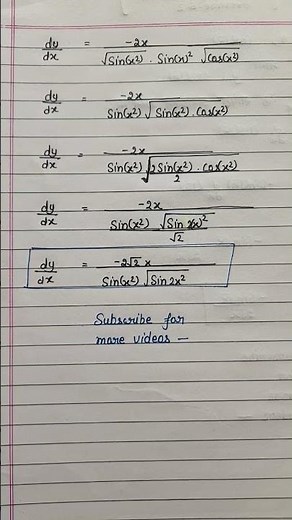 dy/dx = -2x / √Sin(x²) . Sin(x)² √Cos(x²)
dy/dx = -2x / Sin(x²) √Sin(x²) . Cos(x²)
dy/dx = -2x / Sin(x²) √2 Sin(x²) . Cos(x²) / 2
dy/dx = -2x / Sin(x²) √Sin 2(x)² / √2
dy/dx = -2√2 x / Sin(x²) √Sin 2x²
Subscribe for
more videos —